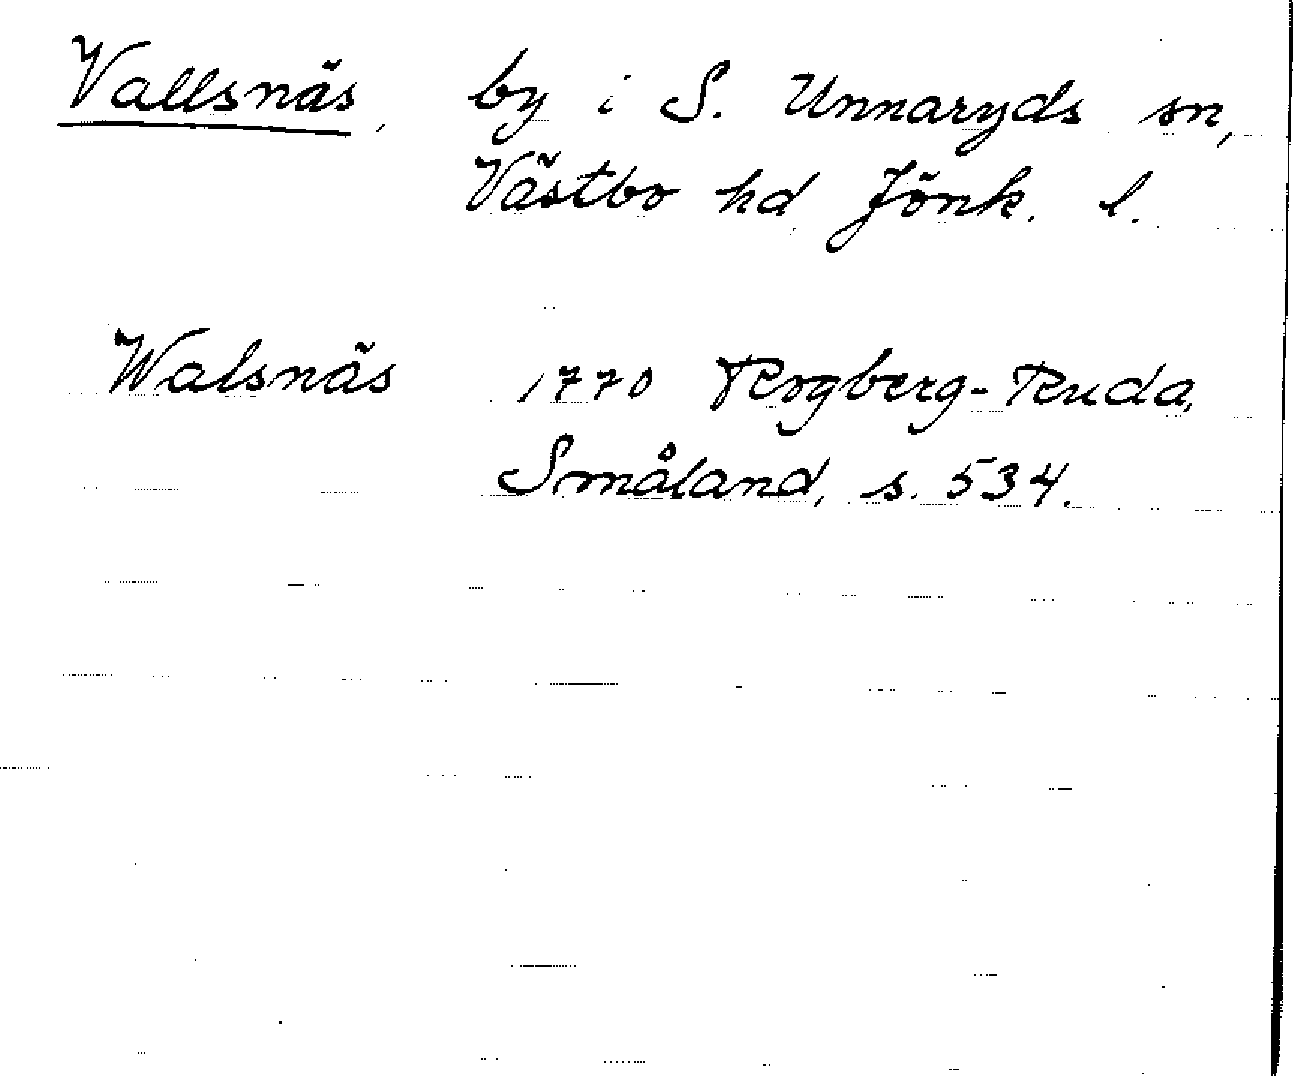 Vallsnäs, by i S. Unnaryds sn,
Västbo hd, Jönk. l.
Walsnäs 1770 Rogberg-Ruda,
Småland, s. 534.